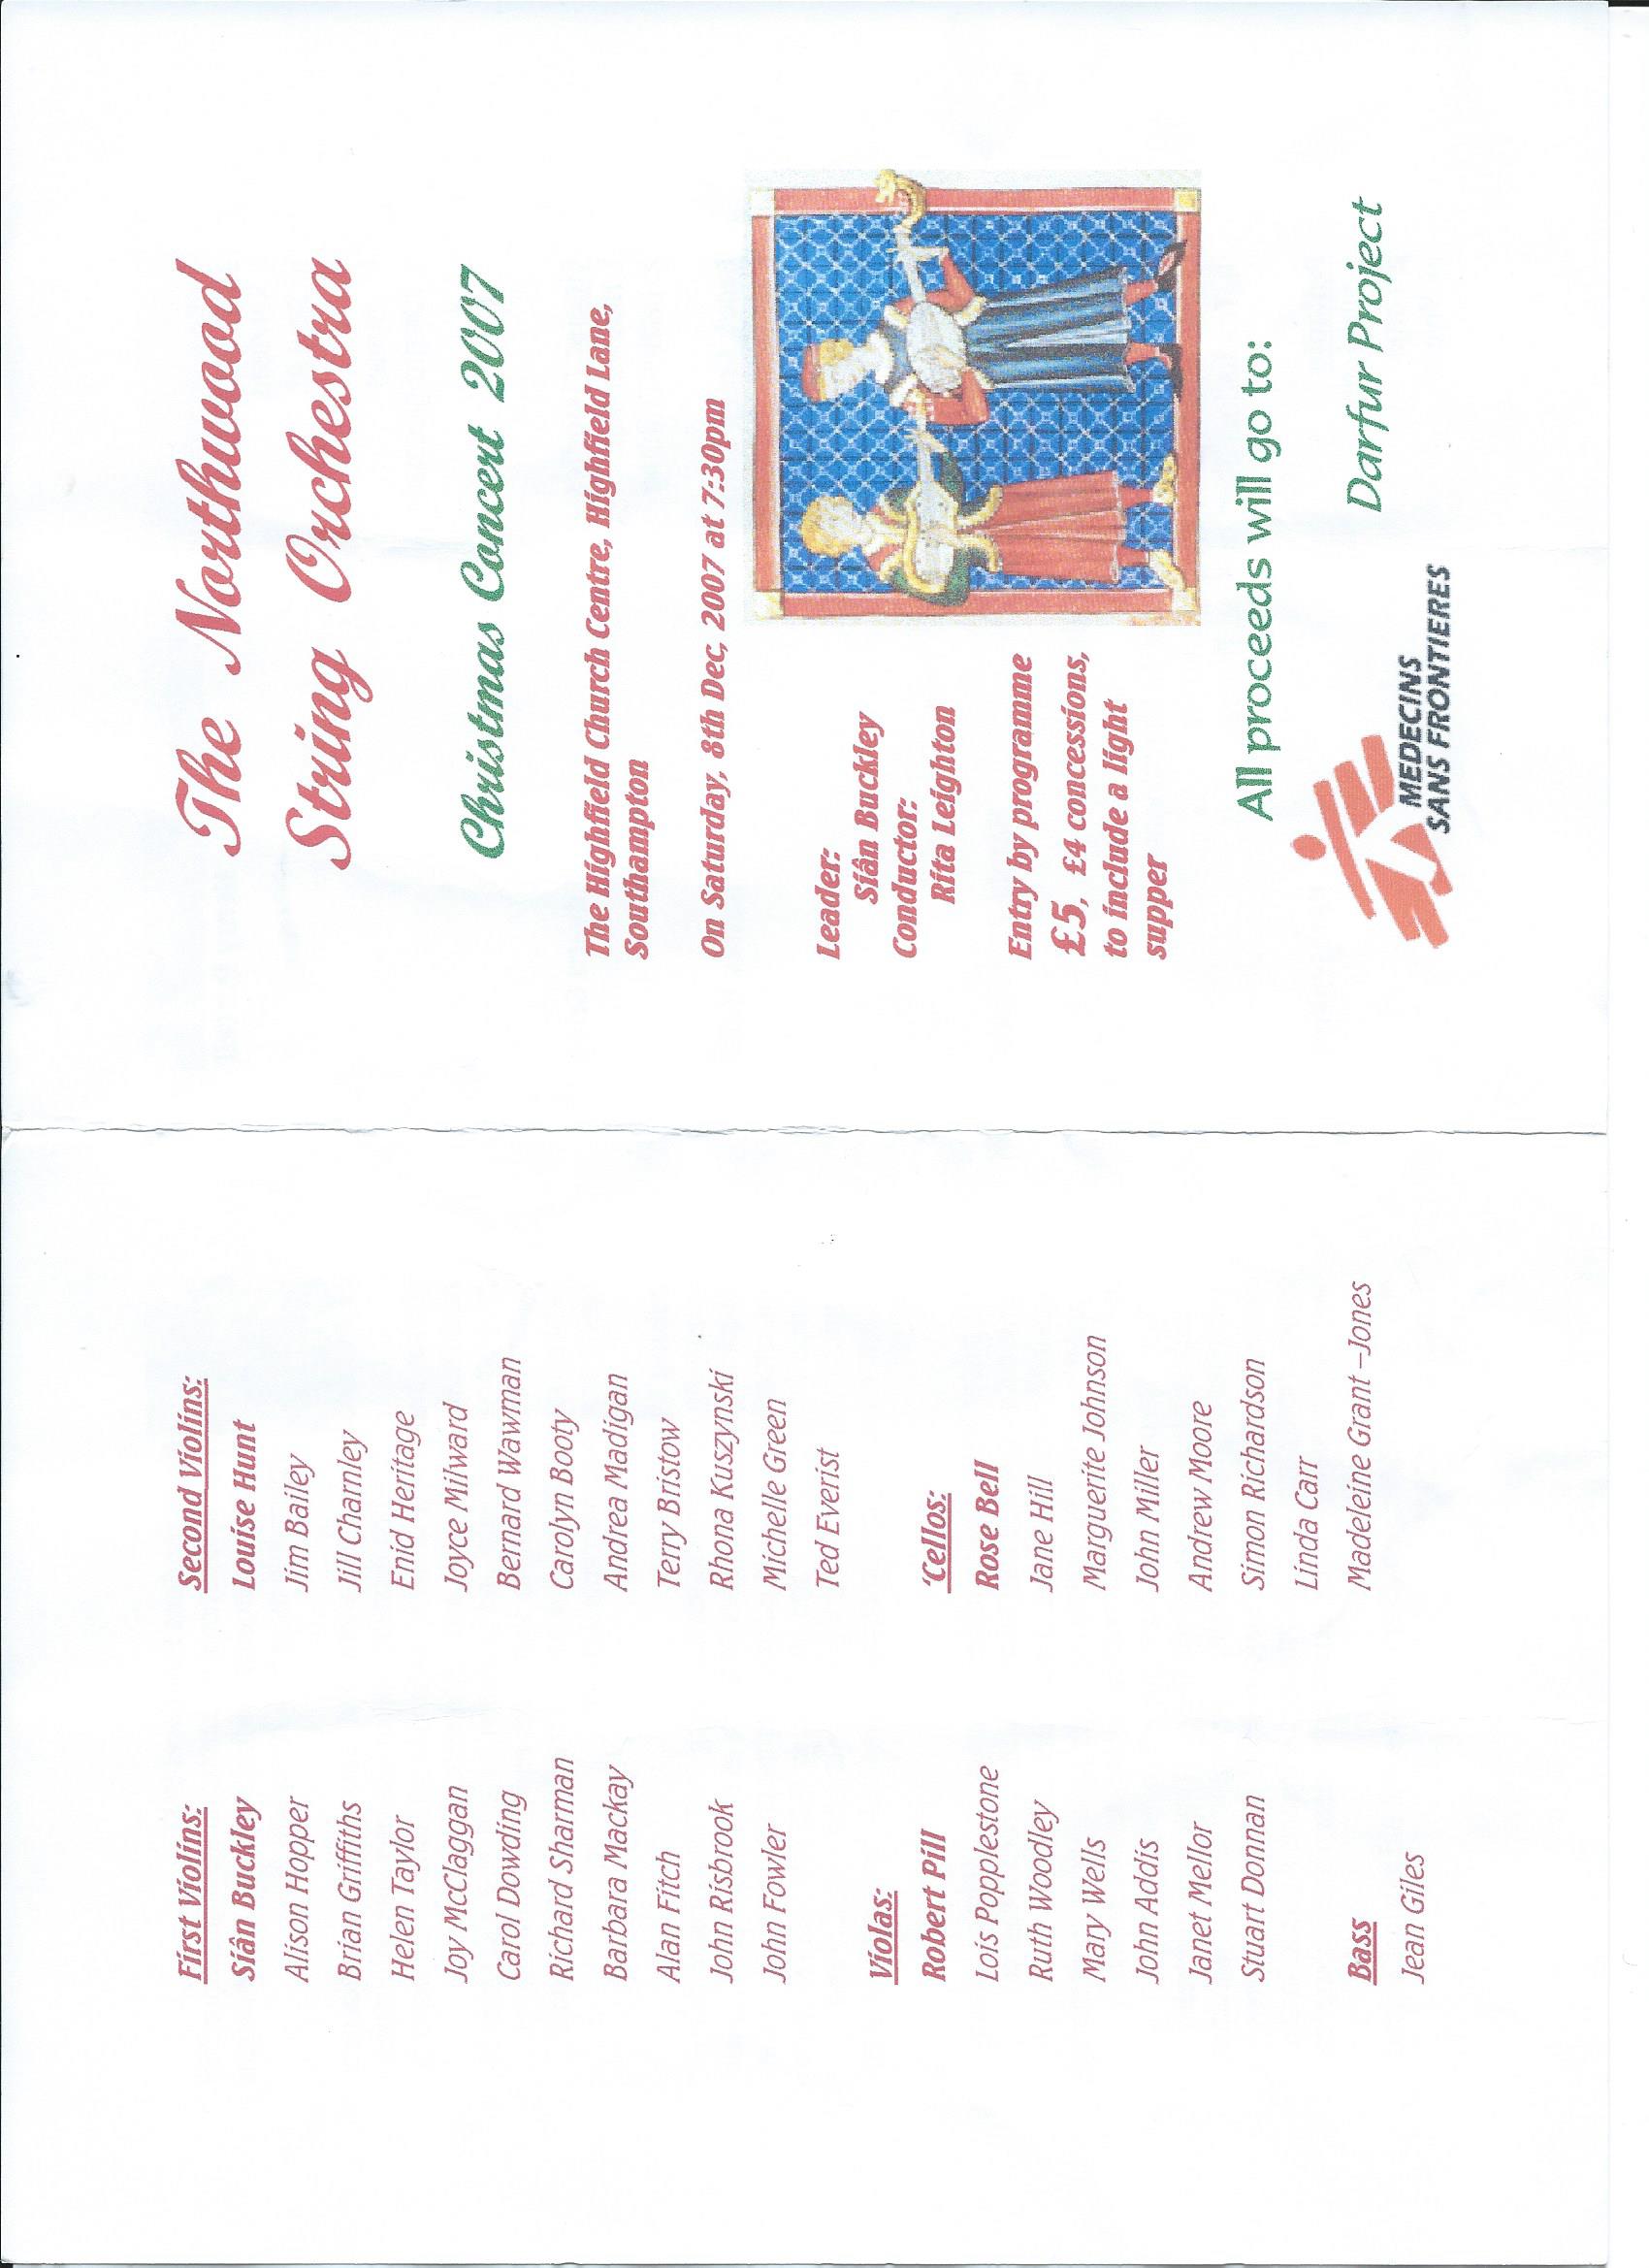 First Violins:
Siân Buckley
Alison Hopper
Brian Griffiths
Helen Taylor
Joy McClaggan
Carol Dowding
Richard Sharman
Barbara Mackay
Alan Fitch
John Risbrook
John Fowler
Violas:
Robert Pill
Lois Popplestone
Ruth Woodley
Mary Wells
John Addis
Janet Mellor
Stuart Donnan
Bass
Jean Giles
Second Violins:
Louise Hunt
Jim Bailey
Jill Charnley
Enid Heritage
Joyce Milward
Bernard Wawman
Carolyn Booty
Andrea Madigan
Terry Bristow
Rhona Kuszynski
Michelle Green
Ted Everist
'Cellos:
Rose Bell
Jane Hill
Marguerite Johnson
John Miller
Andrew Moore
Simon Richardson
Linda Carr
Madeleine Grant –Jones
The Northwood
String Orchestra
Christmas Concert 2007
The Highfield Church Centre, Highfield Lane,
Southampton
On Saturday, 8th Dec, 2007 at 7:30pm
Leader:
Siân Buckley
Conductor:
Rita Leighton
Entry by programme
£5, £4 concessions,
to include a light
supper
All proceeds will go to:
Darfur Project
MEDECINS
SANS FRONTIERES